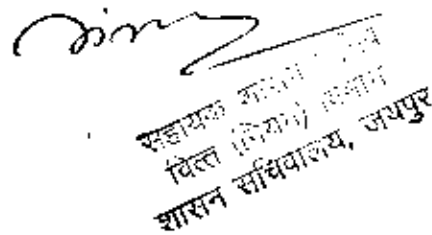 सहायक शासन
वित्त (नियम) विभाग
शासन सचिवालय, जयपुर